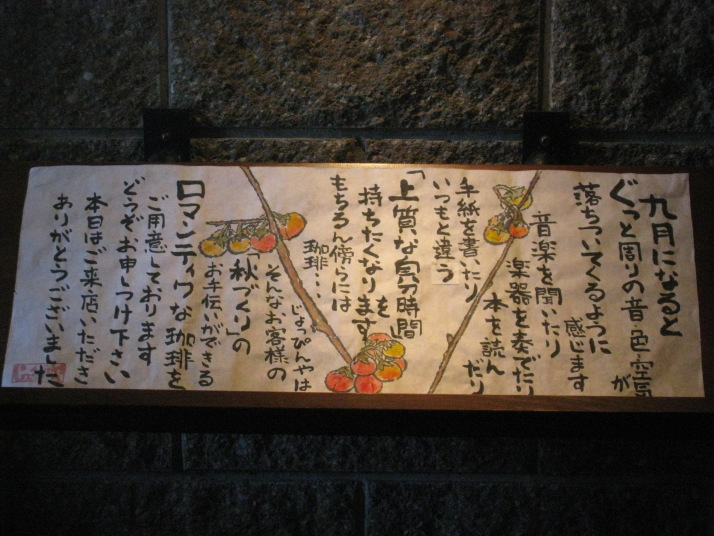 九月になると
ぐっと周りの音・色・空気が
落ちついてくるように
感じます
音楽を聞いたり
楽器を奏でたり
本を読んだり
手紙を書いたり
いつもと違う
「上質な自分時間
を
持ちたくなります
もちろん傍らには
珈琲・・・
じょっぴんやは
そんなお客様の
「秋づくり」の
お手伝いができる
ロマンティクな珈琲を
ご用意しております
どうぞお申しつけ下さい
本日はご来店いただき
ありがとうございました